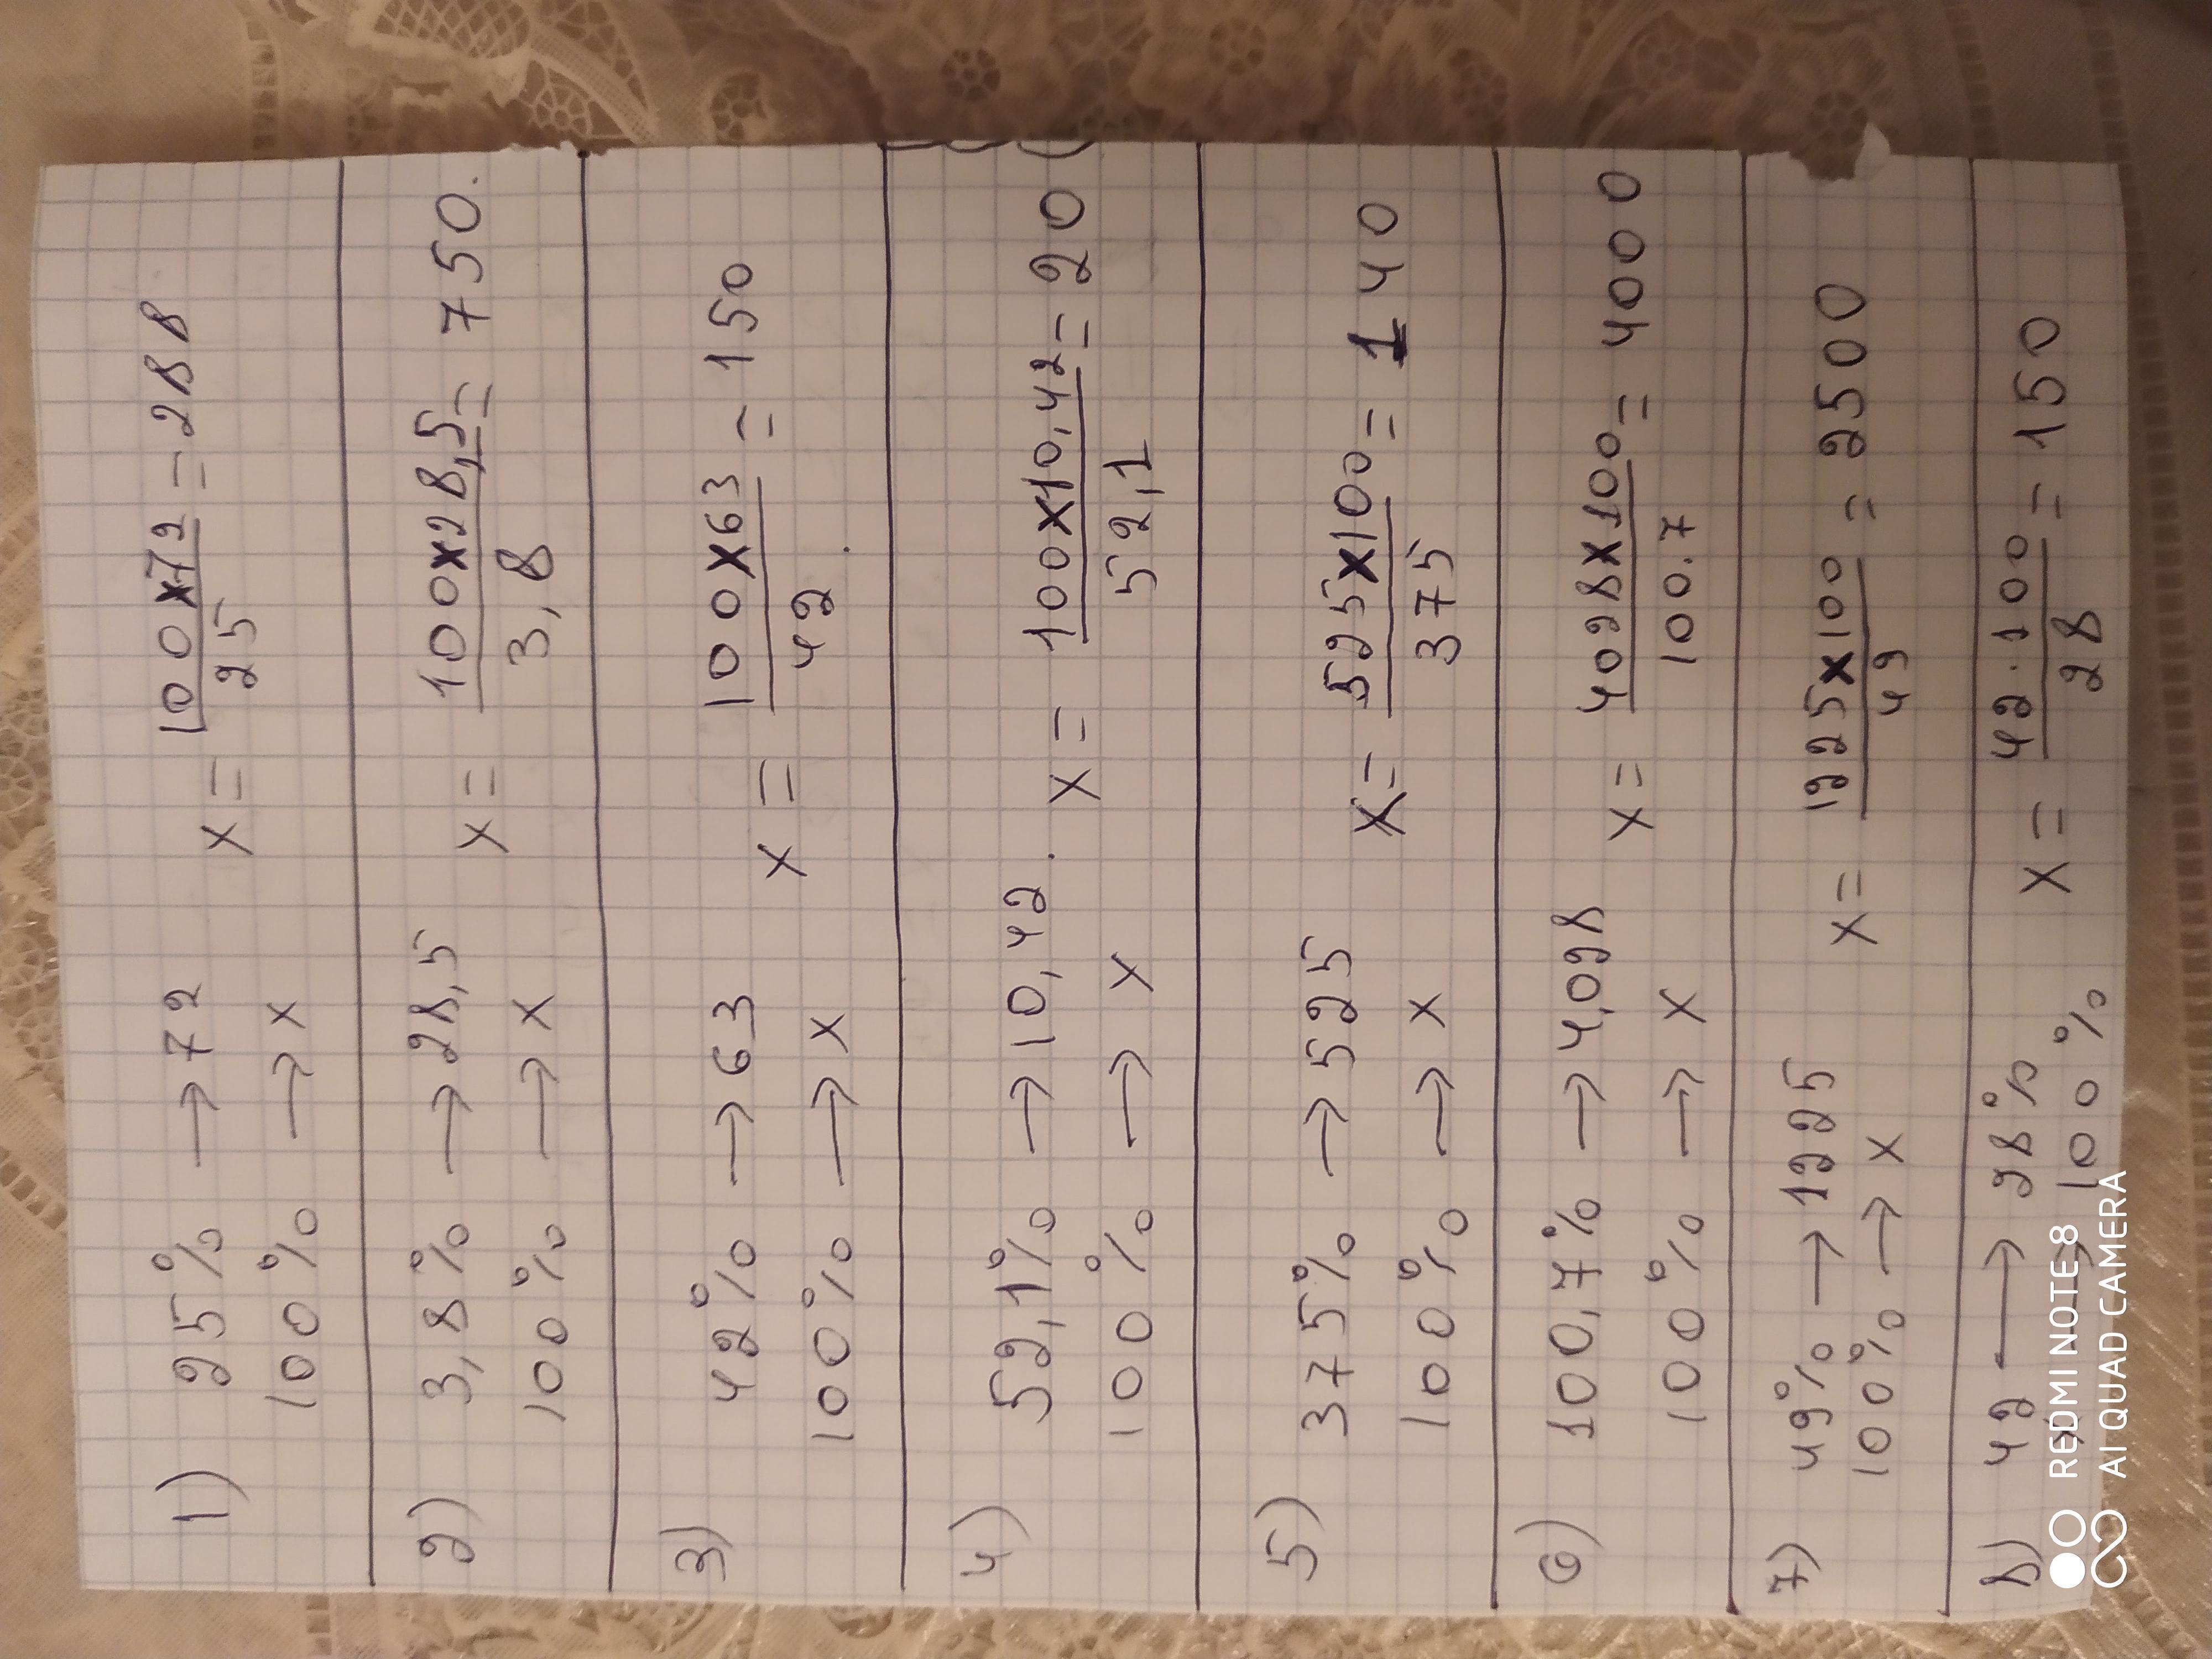 1) 25% → 72
100% → x
x = 100x72 = 288
25
2) 3,8% → 28,5
100% → x
x = 100x28,5 = 750.
3,8
3) 42% → 63
100% → x
x = 100x63 = 150
42
4) 52,1% → 10,42.
100% → x
x = 100x10,42 = 20
52,1
5) 375% → 525
100% → x
x = 525x100 = 140
375
6) 100,7% → 4,028
100% → x
x = 4028x100 = 4000
100.7
7) 49% → 1225
100% → x
x = 1225x100 = 2500
49
8) 42 → 28%
x → 100%
x = 42.100 = 150
28
REDMI NOTE 8
AI QUAD CAMERA